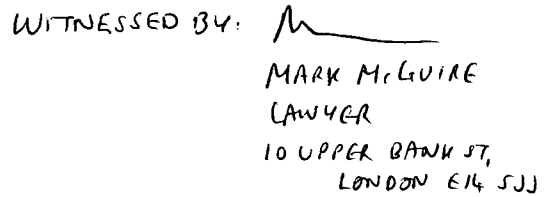 WITNESSED BY:
MARK McGUIRE
LAWYER
10 UPPER BANK ST,
LONDON E14 5JJ